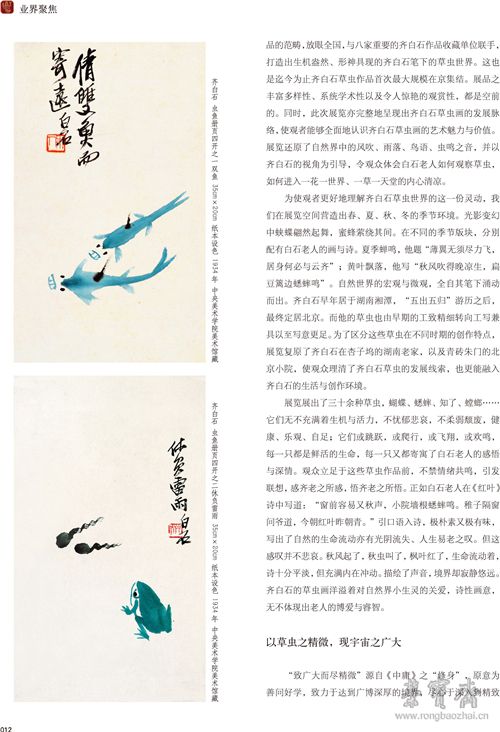 业界聚焦
倩双鱼而
寄远白石
齐白石 虫鱼册页四开之一双鱼 35cm×20cm 纸本设色 1934年 中央美术学院美术馆藏
休负雷雨
白石
齐白石 虫鱼册页四开之二休负雷雨 35cm×20cm 纸本设色 1934年 中央美术学院美术馆藏
品的范畴，放眼全国，与八家重要的齐白石作品收藏单位联手，
打造出生机盎然、形神具现的齐白石笔下的草虫世界。这也
是迄今为止齐白石草虫作品首次最大规模在京集结。展品之
丰富多样性、系统学术性以及令人惊艳的观赏性，都是空前
的。同时，此次展览亦完整地呈现出齐白石草虫画的发展脉
络，使观者能够全面地认识齐白石草虫画的艺术魅力与价值。
展览还原了自然界中的风吹、雨落、鸟语、虫鸣之音，并以
齐白石的视角为引导，令观众体会白石老人如何观察草虫，
如何进入一花一世界、一草一天堂的内心清凉。
为使观者更好地理解齐白石草虫世界的这一份灵动，我
们在展览空间营造出春、夏、秋、冬的季节环境。光影变幻
中蛱蝶翩然起舞，蜜蜂萦绕其间。在不同的季节版块，分别
配有白石老人的画与诗。夏季蝉鸣，他题“薄翼无须尽力飞，
居身何必与云齐”；黄叶飘落，他写“秋风吹得晚凉生，扁
豆篱边蟋蟀鸣”。自然世界的宏观与微观，全自其笔下涌动
而出。齐白石早年居于湖南湘潭，“五出五归”游历之后，
最终定居北京。而他的草虫也由早期的工致精细转向工写兼
具以至写意更足。为了区分这些草虫在不同时期的创作特点，
展览复原了齐白石在杏子坞的湖南老家，以及青砖朱门的北
京小院，使观众理清了齐白石草虫的发展线索，也更能融入
齐白石的生活与创作环境。
展览展出了三十余种草虫，蝴蝶、蟋蟀、知了、螳螂……
它们无不充满着生机与活力，不忧郁悲哀，不柔弱颓废，健
康、乐观、自足；它们或跳跃，或爬行，或飞翔，或欢鸣，
每一只都是鲜活的生命，每一只又都寄寓了白石老人的感悟
与深情。观众立足于这些草虫作品前，不禁情绪共鸣，引发
联想，感齐老之所感，悟齐老之所悟。正如白石老人在《红叶》
诗中写道：“窗前容易又秋声，小院墙根蟋蟀鸣。稚子隔窗
问爷道，今朝红叶昨朝青。”引口语入诗，极朴素又极有味，
写出了自然的生命流动亦有光阴流失、人生易老之叹。但这
感叹并不悲哀。秋风起了，秋虫叫了，枫叶红了，生命流动着，
诗十分平淡，但充满内在冲动。描绘了声音，境界却寂静悠远。
齐白石的草虫画洋溢着对自然界小生灵的关爱，诗性画意，
无不体现出老人的博爱与睿智。
以草虫之精微，现宇宙之广大
“致广大而尽精微”源自《中庸》之“修身”，原意为
善问好学，致力于达到广博深厚的境界，尽心于深入到精致
www.rongbaozhai.cn
012